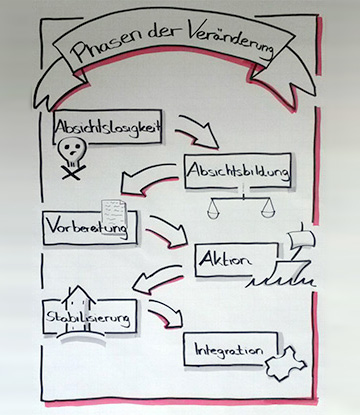 Phasen der Veränderung
Absichtslosigkeit
Absichtsbildung
Vorbereitung
Aktion
Stabilisierung
Integration